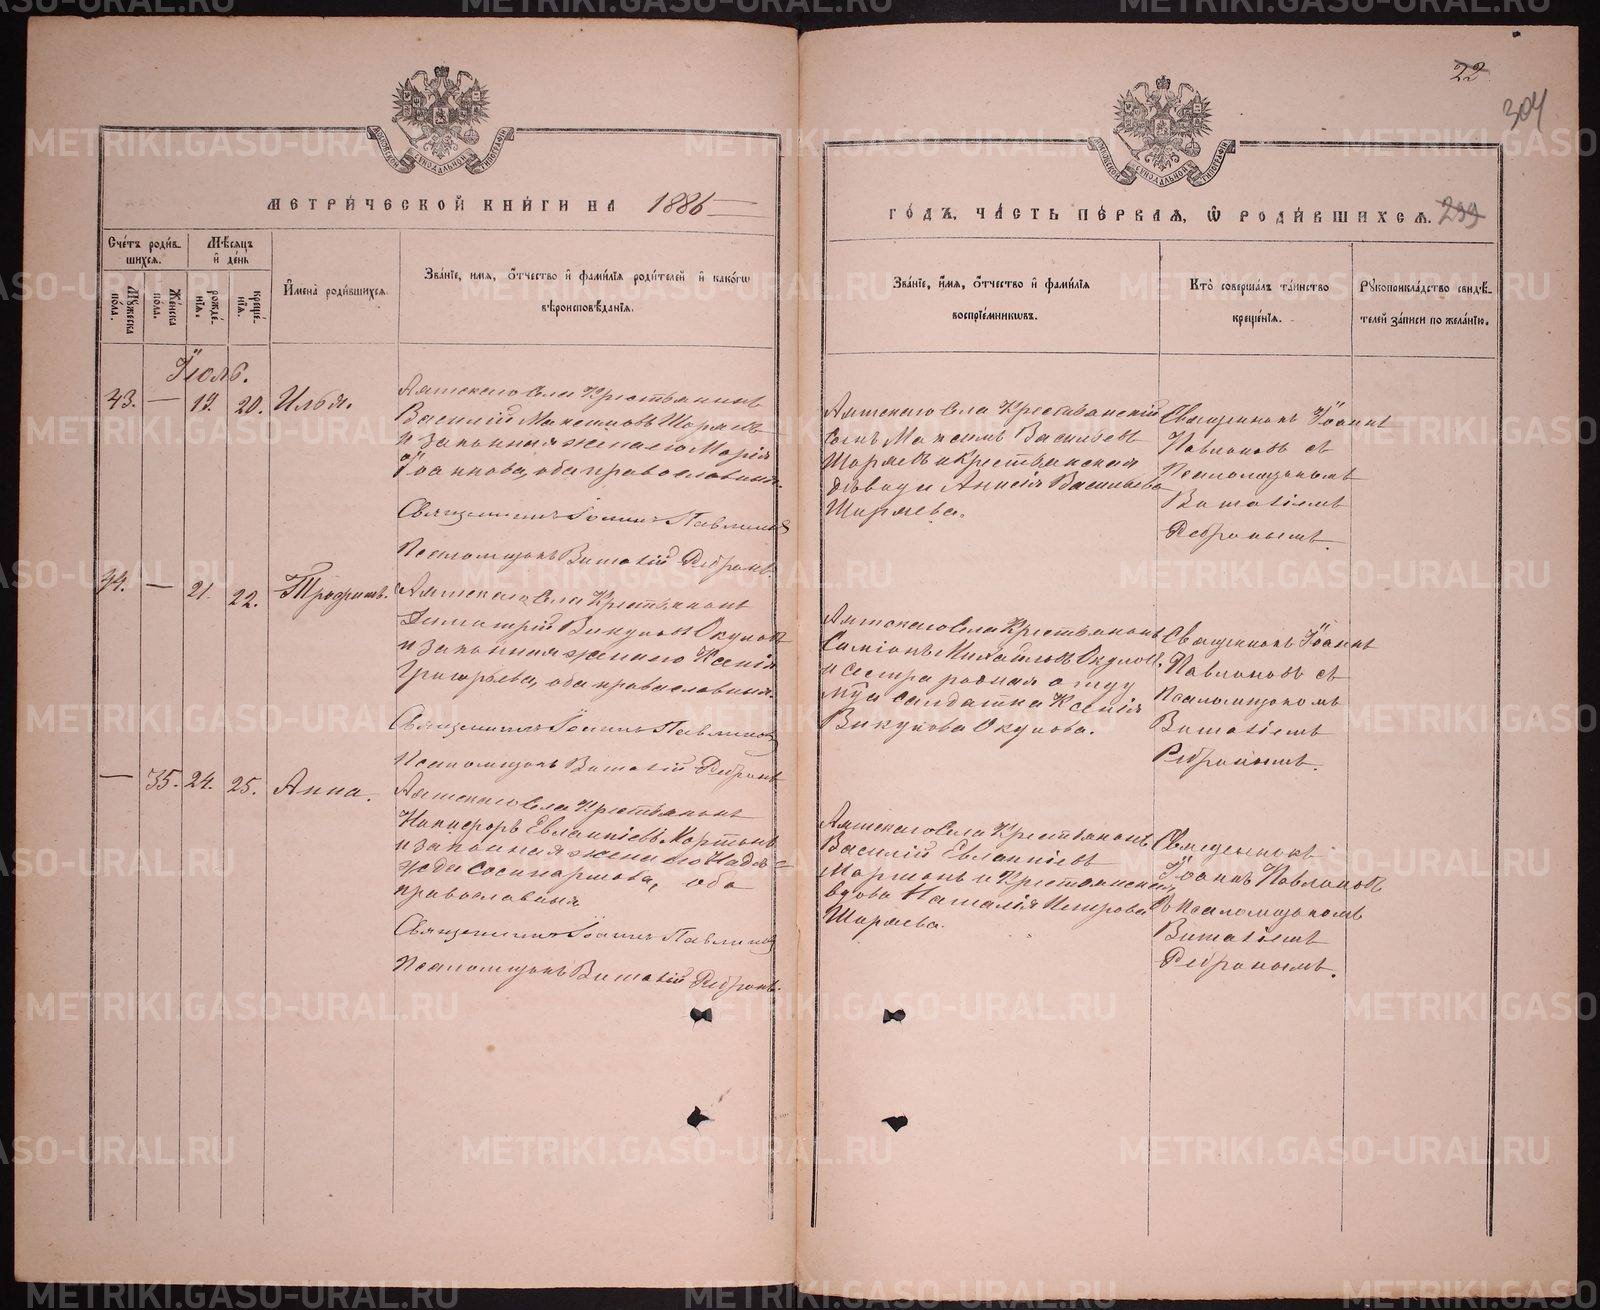 22.
304
МЕТРИ́ЧЕСКОЙ КНИ́ГИ НА 1886
ГО́ДЪ, ЧА́СТЬ ПЕ́РВАЯ, Ѡ РОДИ́ВШИХСЯ. 299
Сче́тъ роди́в-
шихся.
Мѣ́сяцъ
и҆ де́нь
Му́жеска
по́ла.
Же́нска
по́ла.
рожде́-
нїя.
креще́-
нїя.
И҆мена̀ роди́вшихся.
Зва́нїе, и҆мя, о҆́тчество и҆ фами́лїя роди́телей и҆ како́гѡ
вѣроисповѣ́данїя.
Зва́нїе, и҆́мя, о҆́тчество и҆ фами́лїя
воспрїе́мникѡвъ.
Кто̀ соверша́лъ та́инство
креще́нїя.
Рꙋкоприкла́дство свидѣ́-
телей за́писи по жела́нїю.
Іюль.
43. — 19. 20. Илья.
Аятскаго Села Крестьянинъ
Василій Максимовъ Ширяевъ
и законная жена его Марія
Іоаннова, оба православные.
Священникъ Іоаннъ Павлиновъ
Псаломщикъ Виталій Ребринъ.
Аятскаго Села Крестьянскій
сынъ Максимъ Васильевъ
Ширяевъ и Крестьянская
дѣвица Анисія Васильева
Ширяева.
Священникъ Іоаннъ
Павлиновъ съ
Псаломщикомъ
Виталіемъ
Ребринымъ.
44. — 21. 22. Трофимъ.
Аятскаго Села Крестьянинъ
Димитрій Викуловъ Окуловъ
и законная жена его Ксенія
Григорьева, оба православные.
Священникъ Іоаннъ Павлиновъ
Псаломщикъ Виталій Ребринъ
Аятскаго Села Крестьянинъ
Симіонъ Михайловъ Окуловъ
и сестра родная отцу
солдатка Ксенія
Викулова Окулова.
Священникъ Іоаннъ
Павлиновъ съ
Псаломщикомъ
Виталіемъ
Ребринымъ.
— 35. 24. 25. Анна.
Аятскаго Села Крестьянинъ
Никифоръ Евлампіевъ
и законная жена его Надѣ-
жда оба
православные
Священникъ Іоаннъ Павлиновъ
Псаломщикъ Виталій Ребринъ.
Аятскаго Села Крестьянинъ
Василій Евлампіевъ
и Крестьянская
вдова Наталія Петрова
Ширяева.
Священникъ
Іоаннъ Павлиновъ
съ Псаломщикомъ
Виталіемъ
Ребринымъ.
METRIKI.GASO-URAL.RU